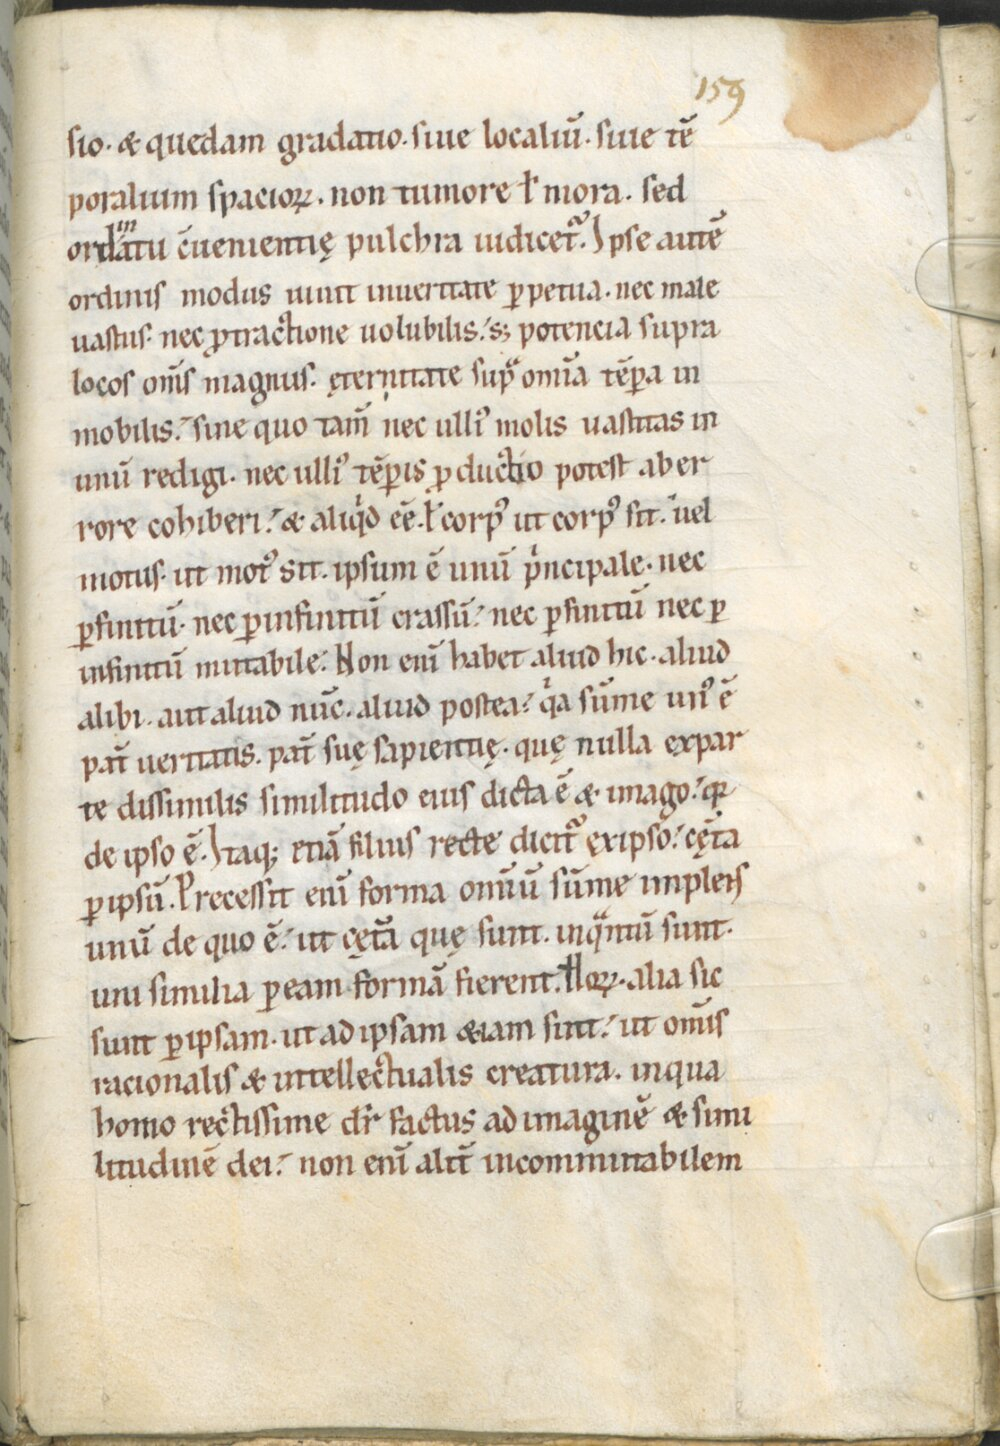 159
sio· & quedam gradatio· siue localiū· siue tē
poralium spacioꝝ· non tumore ł mora· sed
ordinatu c̄uenientię pulchra iudicet᷑. Ipse autē
ordinis modus uiuit inueritate ꝑpetua· nec male
uastus· nec ꝓtractione uolubilis: sꝫ potencia supra
locos om̄s magnus· ęternitate supͣ om̄ia tēꝑa in
mobilis: sine quo tam̄ nec ulliꝰ molis uastitas in
unū redigi· nec ulliꝰ tēꝑis ꝓductio potest ab er
rore cohiberi: & aliqͥd ēē· ł corpꝰ ut corpꝰ sit: uel
motus· ut motꝰ sit· ipsum ē unū pͥncipale· nec
ꝑfinitū· nec ꝑinfinitū crassū: nec ꝑfinitū nec ꝑ
infinitū mutabile: Non eni᷑ habet aliud hic· aliud
alibi· aut aliud nūc· aliud postea: qͥa sūme unꝰ ē
pat̄ ueritatis· pat̄ suę sapientię· quę nulla expar
te dissimilis similitudo eius dicta ē & imago: qꝛ
de ipso ē. Itaqꝫ etiā filius recte dicit᷑ exipso: cęt̄a
ꝑipsū. Precessit eni᷑ forma om̄iū sūme implens
unū de quo ē: ut cęt̄a quę sunt· inqͣntū sunt·
uni similia ꝑeam formā fierent. Hoꝝ· alia sic
sunt ꝑipsam· ut ad ipsam &iam sint: ut om̄is
racionalis & intellectualis creatura· inqua
homo rectissime dr̄ factus ad imaginē & simi
litudinē dei: non eni᷑ alit̄ incommutabilem